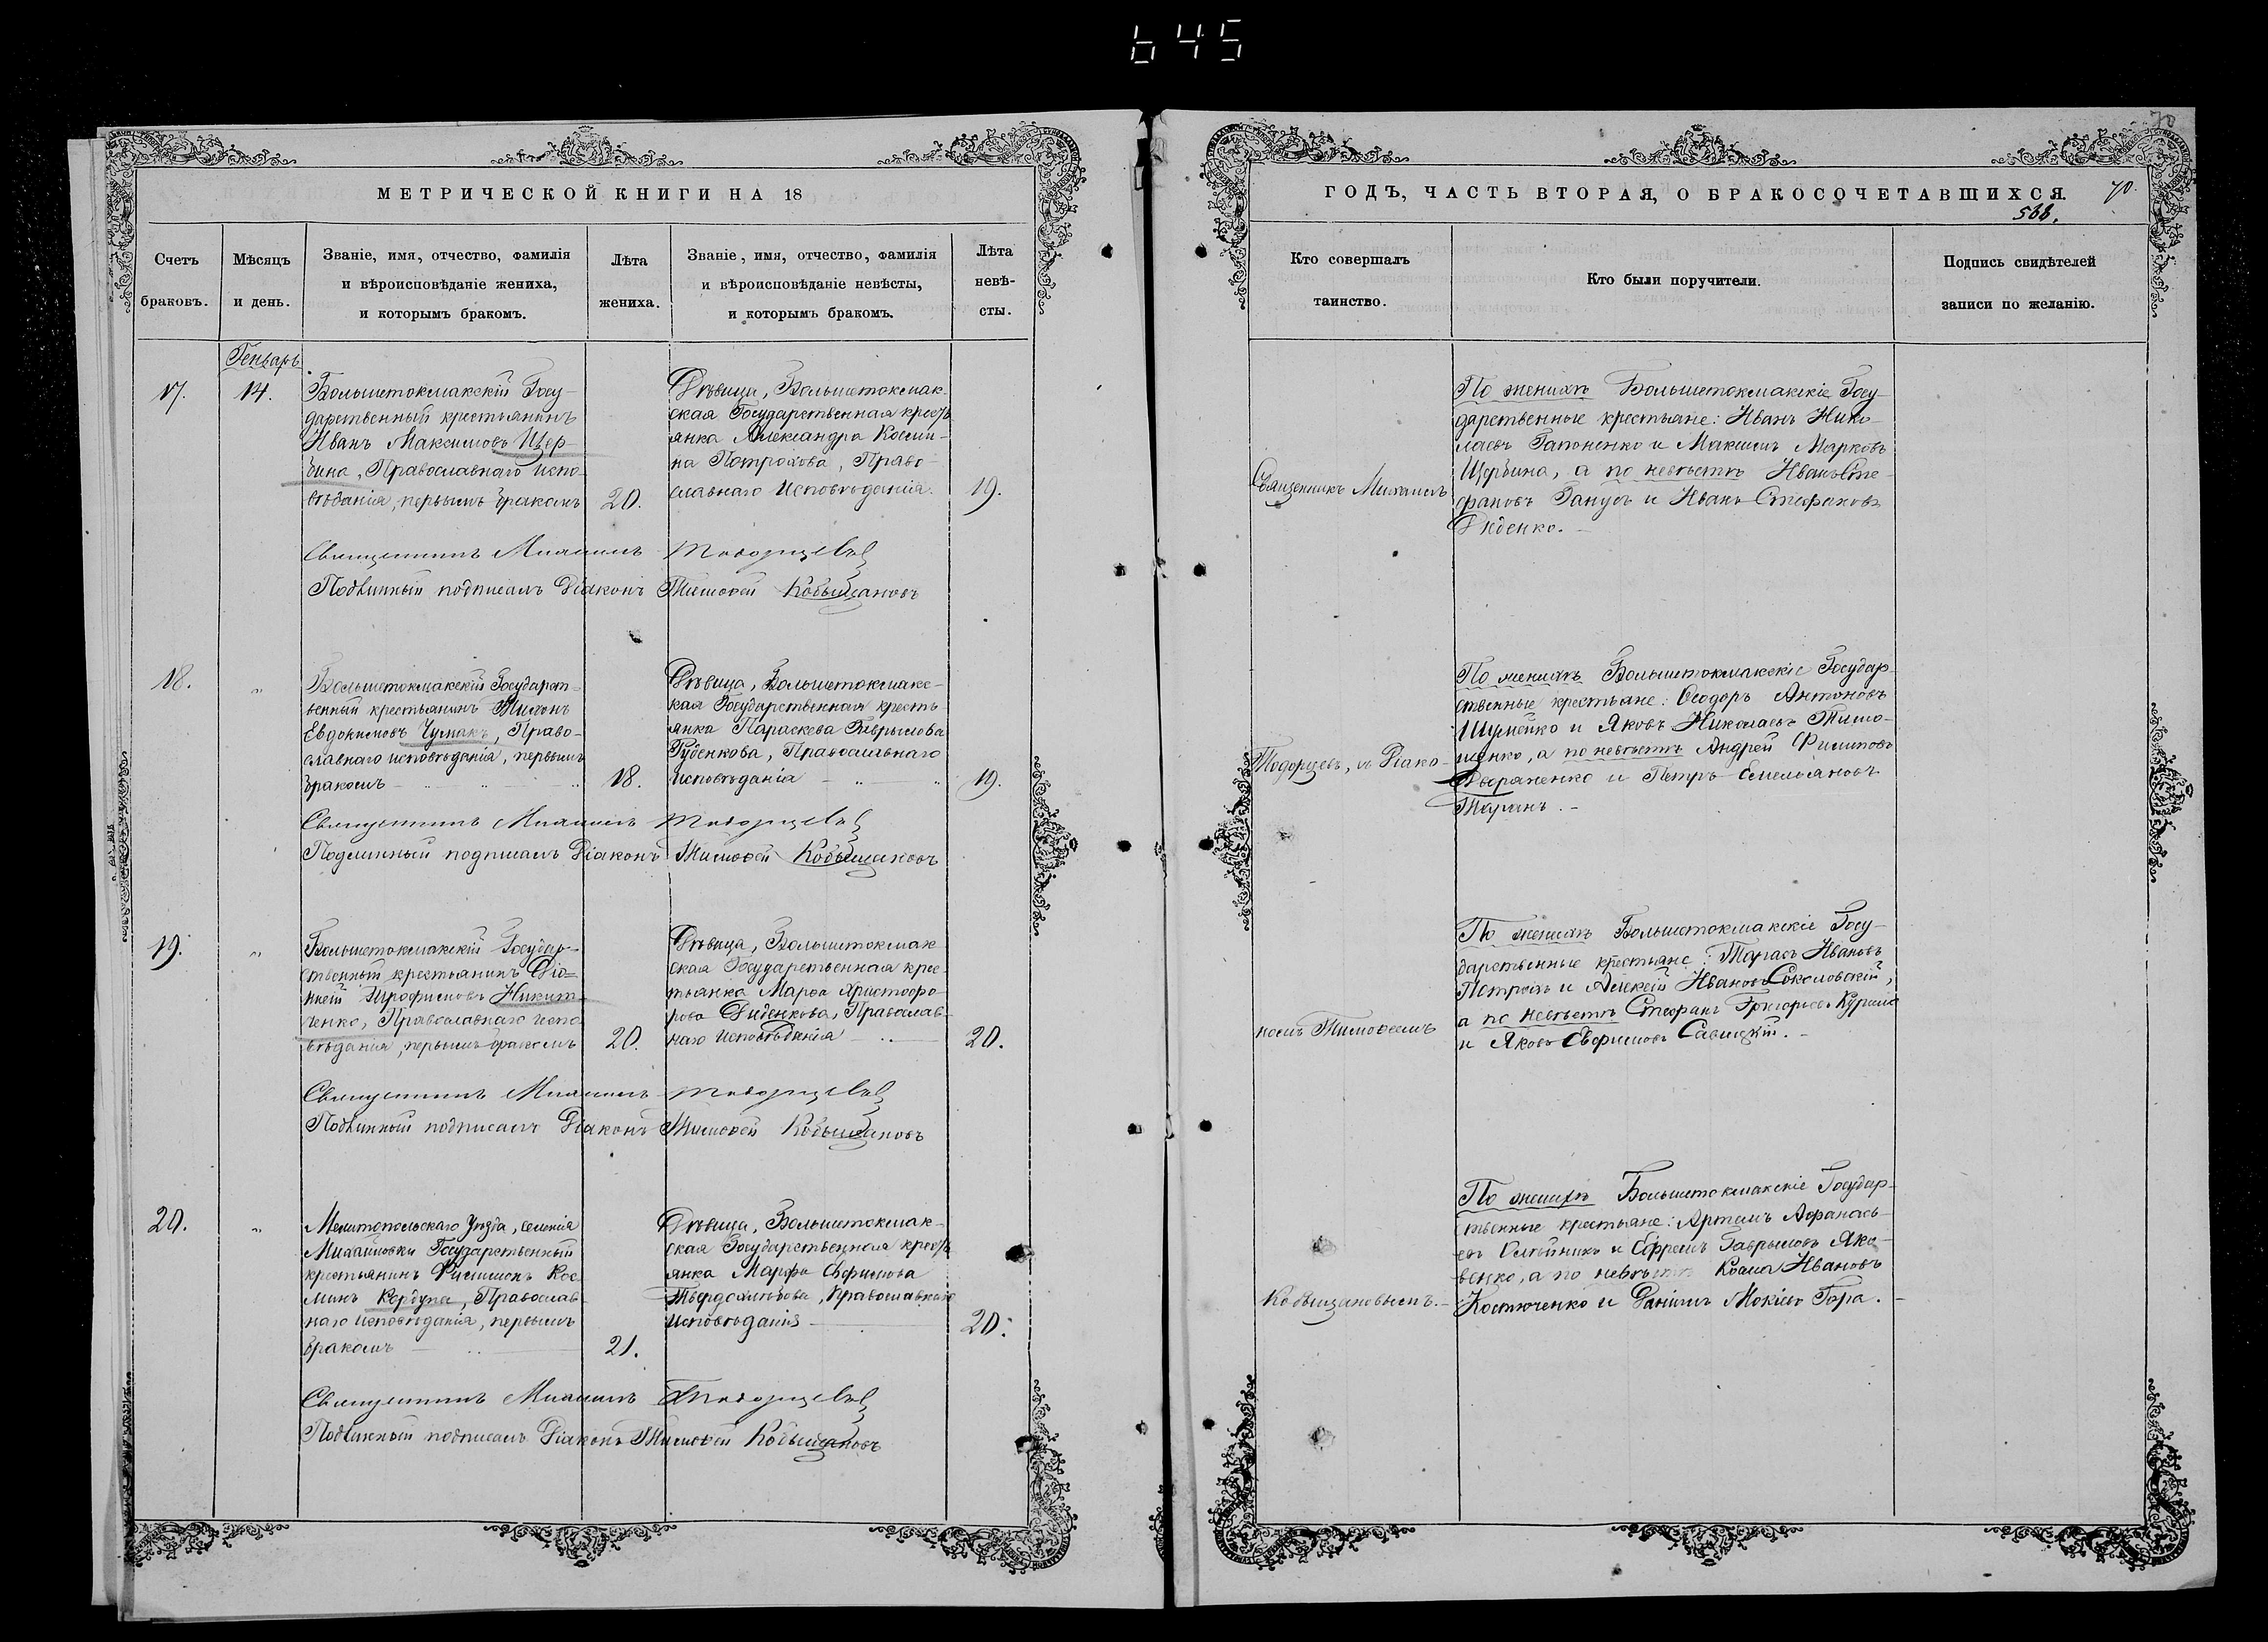 645
МЕТРИЧЕСКОЙ КНИГИ НА 18
Счетъ
браковъ.
Мѣсяцъ
и день.
Званіе, имя, отчество, фамилія
и вѣроисповѣданіе жениха,
и которымъ бракомъ.
Лѣта
жениха.
Званіе, имя, отчество, фамилія
и вѣроисповѣданіе невѣсты,
и которымъ бракомъ.
Лѣта
невѣ-
сты.
Генварь
17.
14.
Большетокмакскій Госу-
дарственный крестьянинъ
Иванъ Максимовъ Щер-
бина, Православнаго испо-
вѣданія, первымъ бракомъ
20.
Дѣвица, Большетокмак-
ская Государственная кресть
янка Александра Косми-
на Потрохова, Право-
славнаго Исповѣданія.
19.
Священникъ Михаилъ Тодорцевъ
Подлинный подписалъ Діаконъ Тимоѳей Кобыщановъ
18.
"
Большетокмакскій Государст-
венный крестьянинъ Тихонъ
Евдокимовъ Чумакъ, Право-
славнаго исповѣданія, первымъ
бракомъ
18.
Дѣвица, Большетокмакс-
кая Государственная кресть
янка Параскева Гаврылова
Руденкова, Православнаго
исповѣданія
19.
Священникъ Михаилъ Тодорцевъ
Подлинный подписалъ Діаконъ Тимоѳей Кобыщановъ
19.
"
Большетокмакскій Государ-
ственный крестьянинъ Діо-
нисій Трофимовъ Никит-
ченко, Православнаго испо-
вѣданія, первымъ бракомъ
20.
Дѣвица, Большетокмак
ская Государственная крес-
тьянка Марѳа Христофо-
рова Диденкова, Православ-
наго исповѣданія
20.
Священникъ Михаилъ Тодорцевъ
Подлинный подписалъ Діаконъ Тимоѳей Кобыщановъ
20.
"
Мелитопольскаго Уѣзда, селенія
Михайловки Государственный
крестьянинъ Филимонъ Кос-
минъ Кердупа, Православ-
наго исповѣданія, первымъ
бракомъ
21.
Дѣвица, Большетокмак-
ская Государственная кресть
янка Марфа Ефимова
Твердохлѣбова, Православнаго
исповѣданія
20.
Священникъ Михаилъ Тодорцевъ
Подлинный подписалъ Діаконъ Тимоѳей Кобыщановъ
70
ГОДЪ, ЧАСТЬ ВТОРАЯ, О БРАКОСОЧЕТАВШИХСЯ.
70.
588.
Кто совершалъ
таинство.
Кто были поручители.
Подпись свидѣтелей
записи по желанію.
Священникъ Михаилъ
По женихѣ Большетокмакскіе Госу-
дарственные крестьяне: Иванъ Нико-
лаевъ Гапоненко и Максимъ Марковъ
Щербина, а по невѣстѣ Иванъ Сте-
фановъ Ганусъ и Иванъ Стефановъ
Диденко.
Тодорцевъ, съ Діако-
По женихѣ Большетокмакскіе Государ-
ственные крестьяне: Ѳеодоръ Антоновъ
Шумейко и Яковъ Николаевъ Тимо-
шенко, а по невѣстѣ Андрей Филиповъ
Двораненко и Петръ Емельяновъ
Таранъ.
номъ Тимоѳеемъ
По женихѣ Большетокмакскіе Госу-
дарственные крестьяне: Тарасъ Ивановъ
Петрохъ и Алексій Ивановъ Соколовскій,
а по невѣстѣ Стефанъ Григорьевъ Курило
и Яковъ Ефимовъ Савицкій.
Кобыщановымъ.
По женихѣ Большетокмакскіе Государ-
ственные крестьяне: Артемъ Аѳанась-
евъ Олейникъ и Ефремъ Гаврыловъ Яко-
венко, а по невѣстѣ Косма Ивановъ
Костюченко и Даніилъ Мокіевъ Гора.